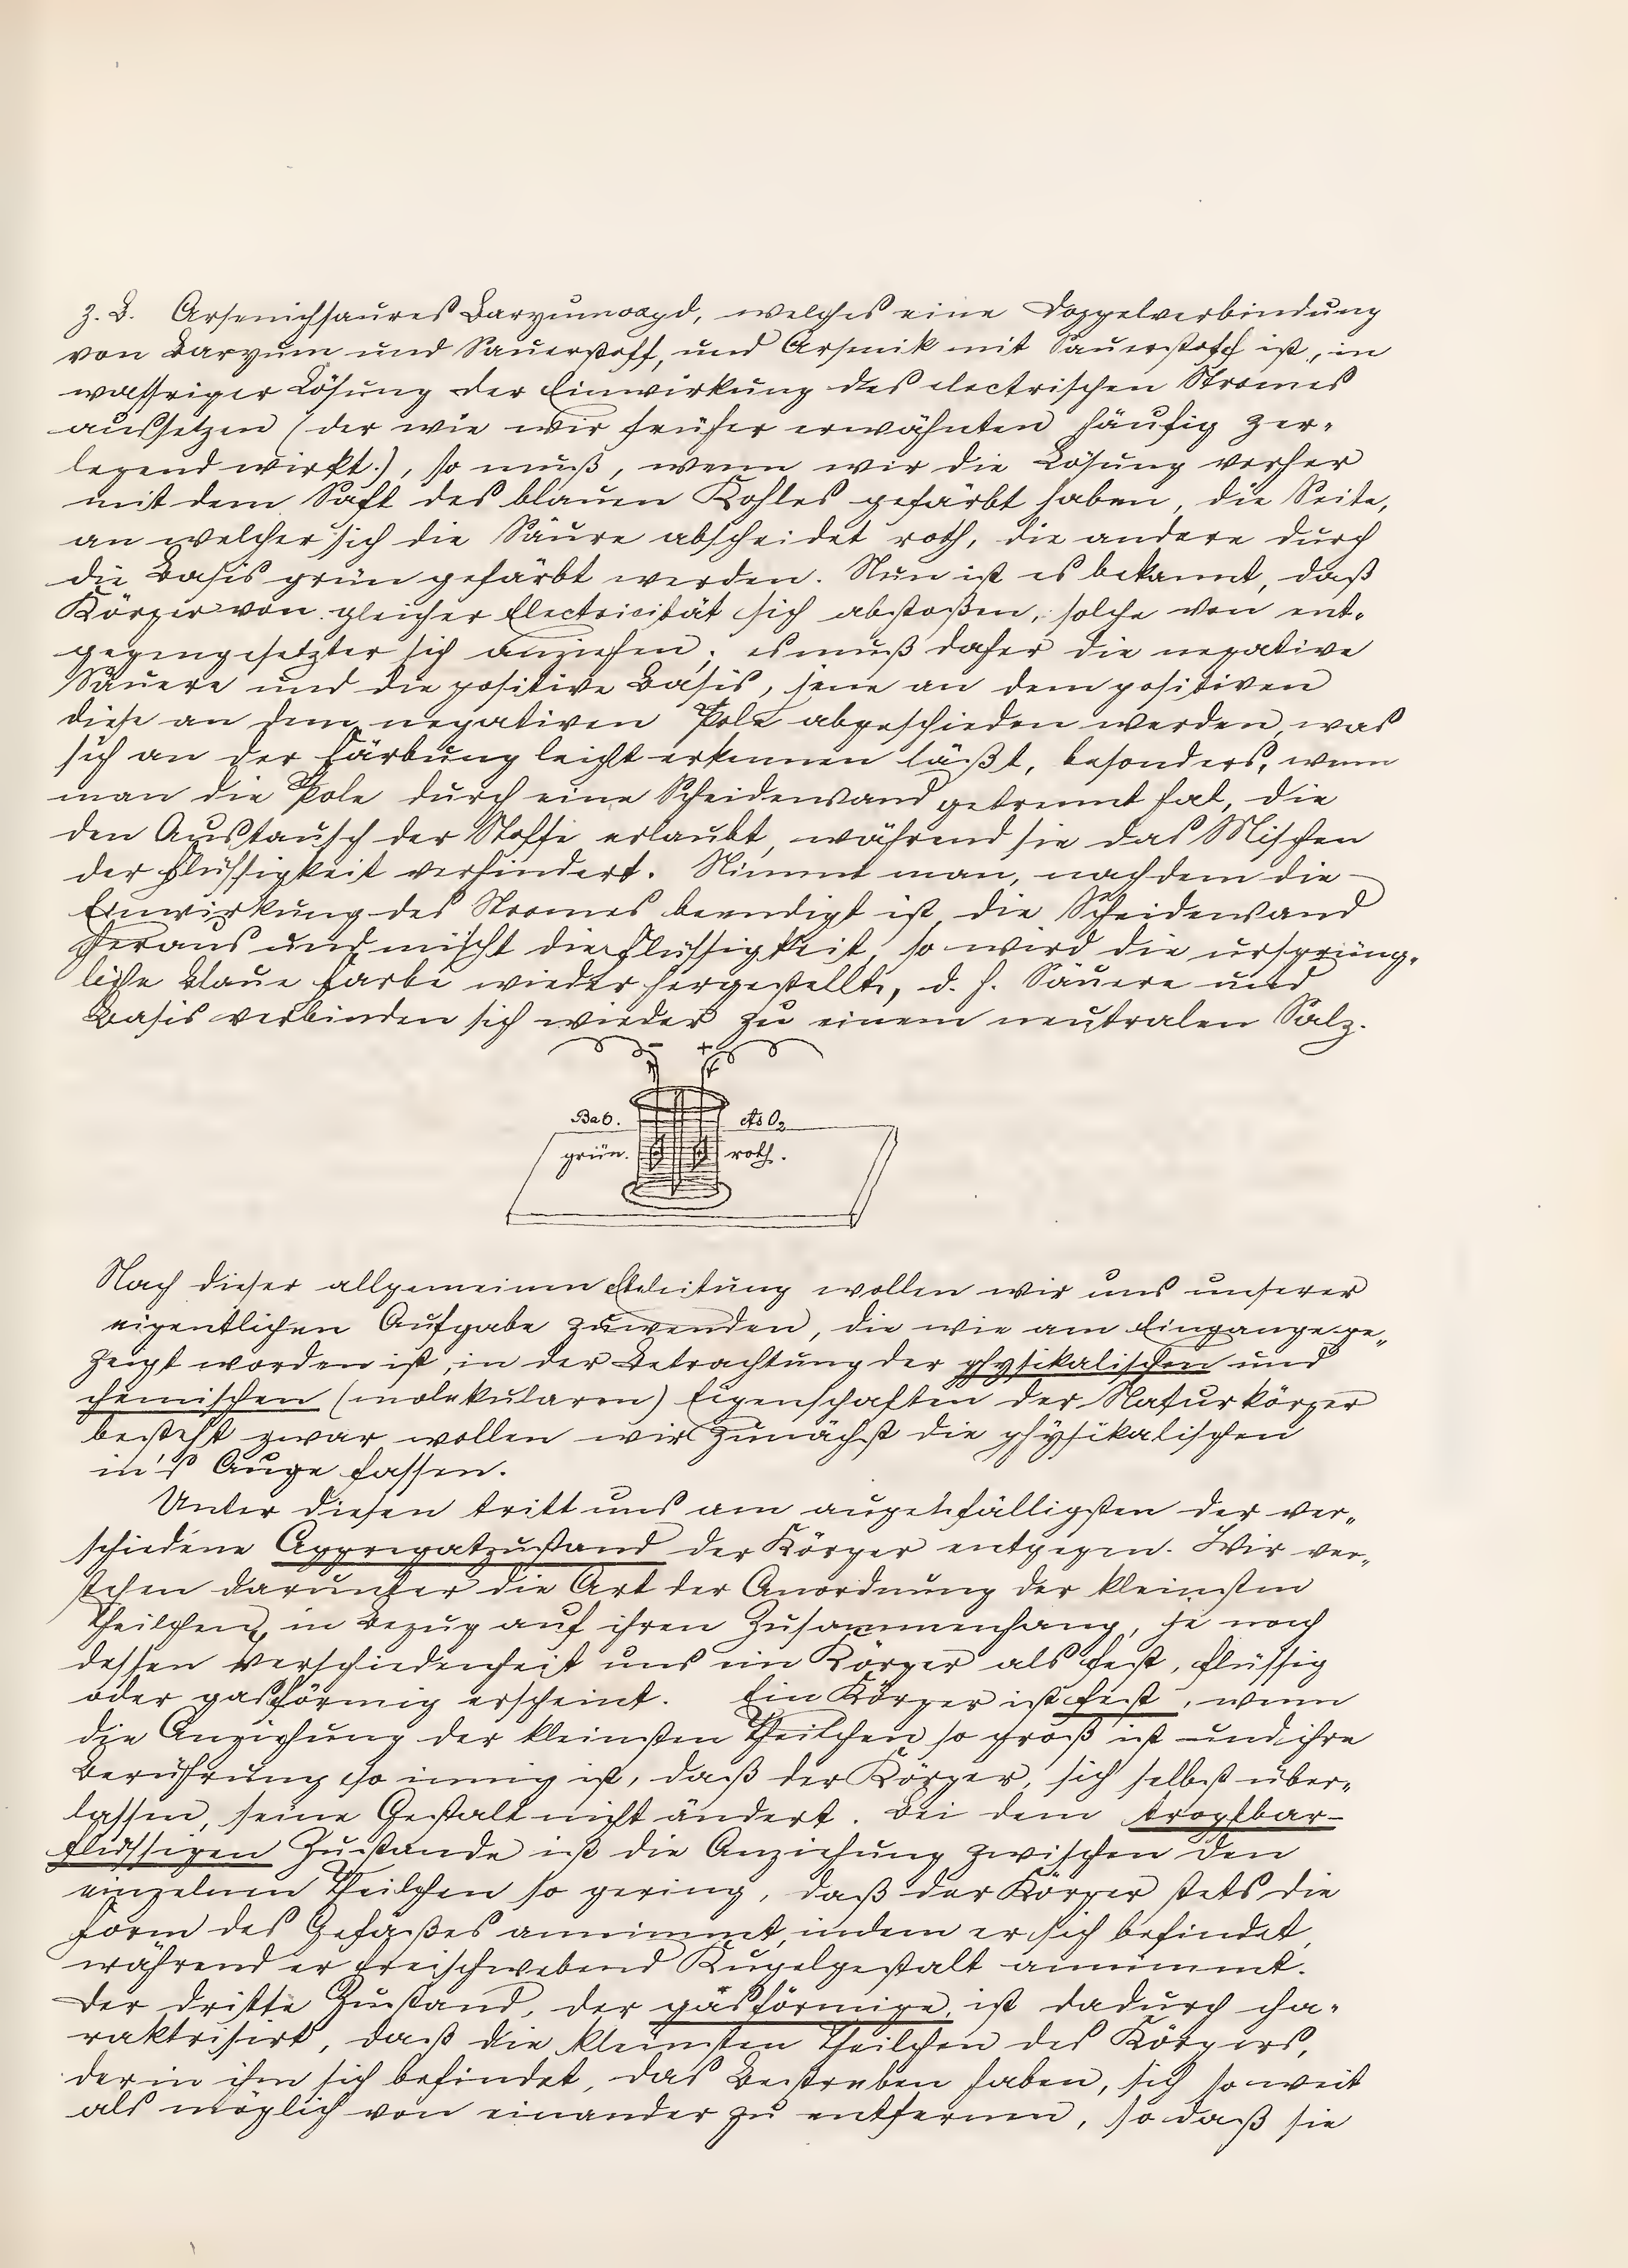 z. B. Arsenichsaures Baryumoxyd, welches eine Doppelverbindung
von Baryum und Sauerstoff, und Arsenik mit Sauerstoff ist, in
wassriger Lösung der Einwirkung des electrischen Stromes
aussetzen (der wie wir früher erwähnten häufig zer-
legend wirkt.), so muß, wenn wir die Lösung vorher
mit dem Saft des blauen Kohles gefärbt haben, die Seite,
an welcher sich die Säure abscheidet roth, die andere durch
die Basis grün gefärbt werden. Nun ist es bekannt, daß
Körper von gleicher Electricität sich abstoßen, solche von ent-
gegengesetzter sich anziehen; es muß daher die negative
Säuere und die positive Basis, jene an dem positiven
diese an dem negativen Pole abgeschieden werden, was
sich an der Färbung leicht erkennen läßt, besonders, wenn
man die Pole durch eine Scheidewand getrennt hat, die
den Austausch der Stoffe erlaubt, während sie das Mischen
der Flüssigkeit verhindert. Nimmt man, nachdem die
Einwirkung des Stromes beendigt ist, die Scheidewand
heraus und mischt die Flüssigkeit, so wird die ursprüng-
liche blaue Farbe wieder hergestellt, d. h. Säuere und
Basis verbinden sich wieder zu einem neutralen Salz.
- +
BaO. AsO3
grün. roth.
Nach dieser allgemeinen wollen wir uns unserer
eigentlichen Aufgabe zuwenden, die wie am Eingange ge-
zeigt worden ist, in der Betrachtung der physikalischen und
chemischen (molekularen) Eigenschaften der Naturkörper
besteht zwar wollen wir zunächst die physikalischen
in's Auge fassen.
Unter diesen tritt uns am augenfälligsten der ver-
schiedene Aggregatzustand der Körper entgegen. Wir ver-
stehen darunter die Art der Anordnung der kleinsten
Theilchen, in Bezug auf ihren Zusammenhang, je nach
dessen Verschiedenheit uns ein Körper als fest, flüssig
oder gasförmig erscheint. Ein Körper ist fest, wenn
die Anziehung der kleinsten Theilchen so groß ist und ihre
Berührung so innig ist, daß der Körper, sich selbst über-
lassen, seine Gestalt nicht ändert. Bei dem tropfbar-
flüssigen Zustande ist die Anziehung zwischen den
einzelnen Theilchen so gering, daß der Körper stets die
Form des Gefäßes annimmt, indem er sich befindet,
während er freischwebend Kugelgestalt annimmt.
Der dritte Zustand, der gasförmige, ist dadurch cha-
raktrisirt, daß die kleinsten Theilchen des Körpers,
der in ihm sich befindet, das Bestreben haben, sich so weit
als möglich von einander zu entfernen, so daß sie